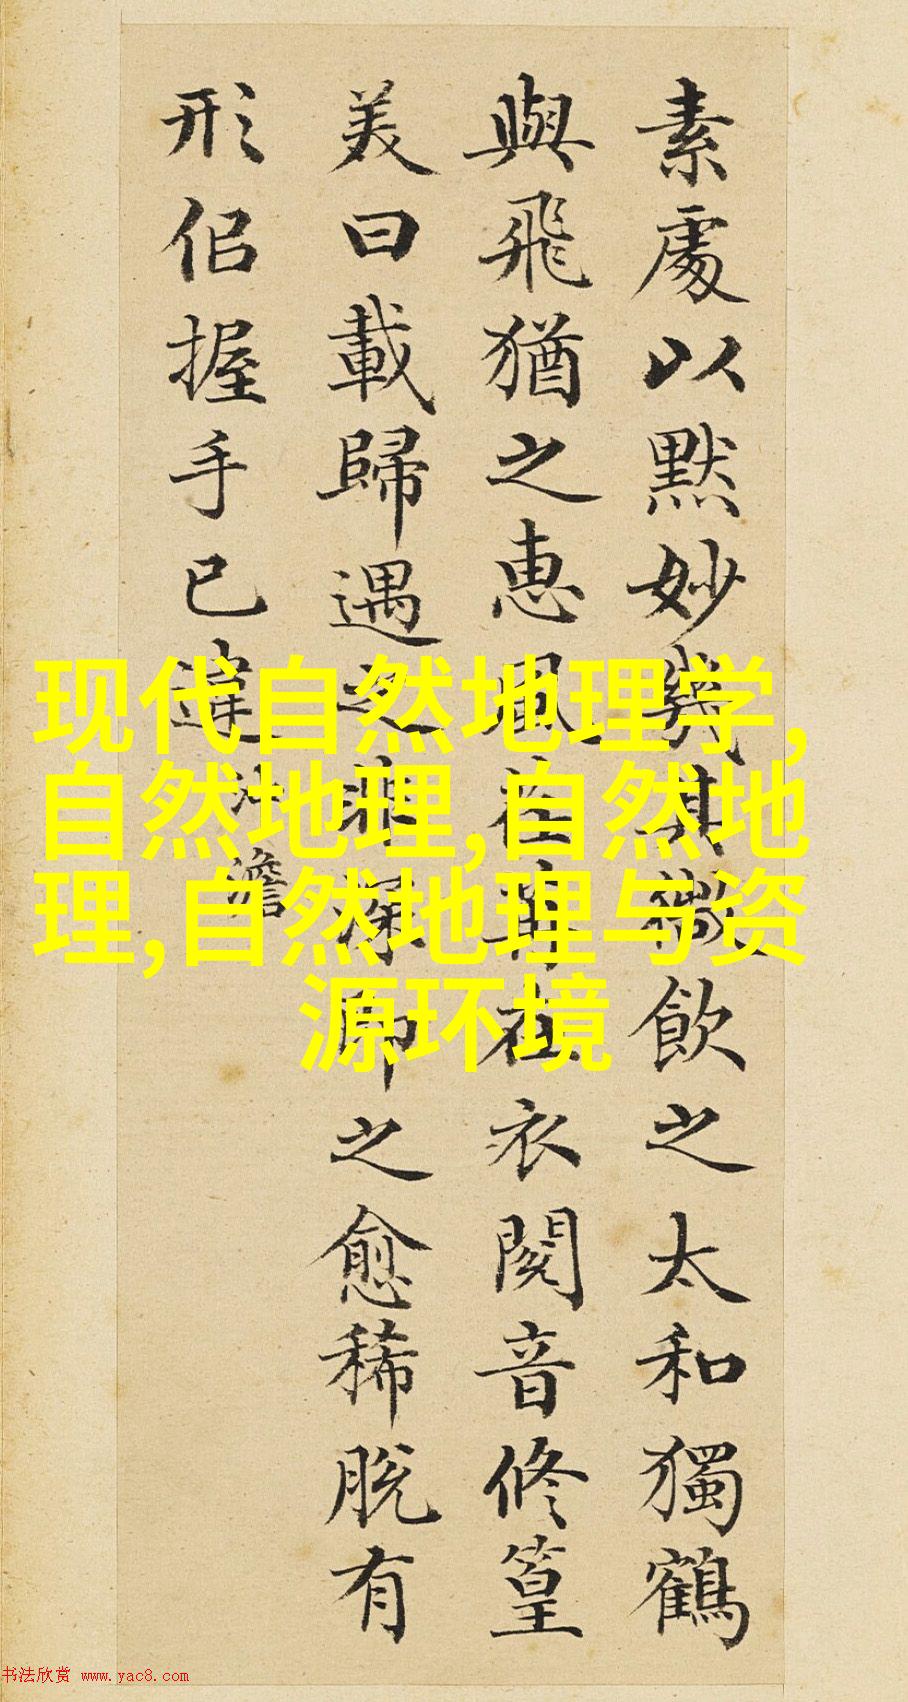 素處以默妙機其微飲之太和獨鶴
與飛猶之惠風荏苒在衣閱音修篁
美曰載歸遇之匪深即之愈稀脫有
形侣握手已違 沖澹
现代自然地理学,
自然地理,自然地
理,自然地理与资
源环境
书法欣赏 www.yac8.com